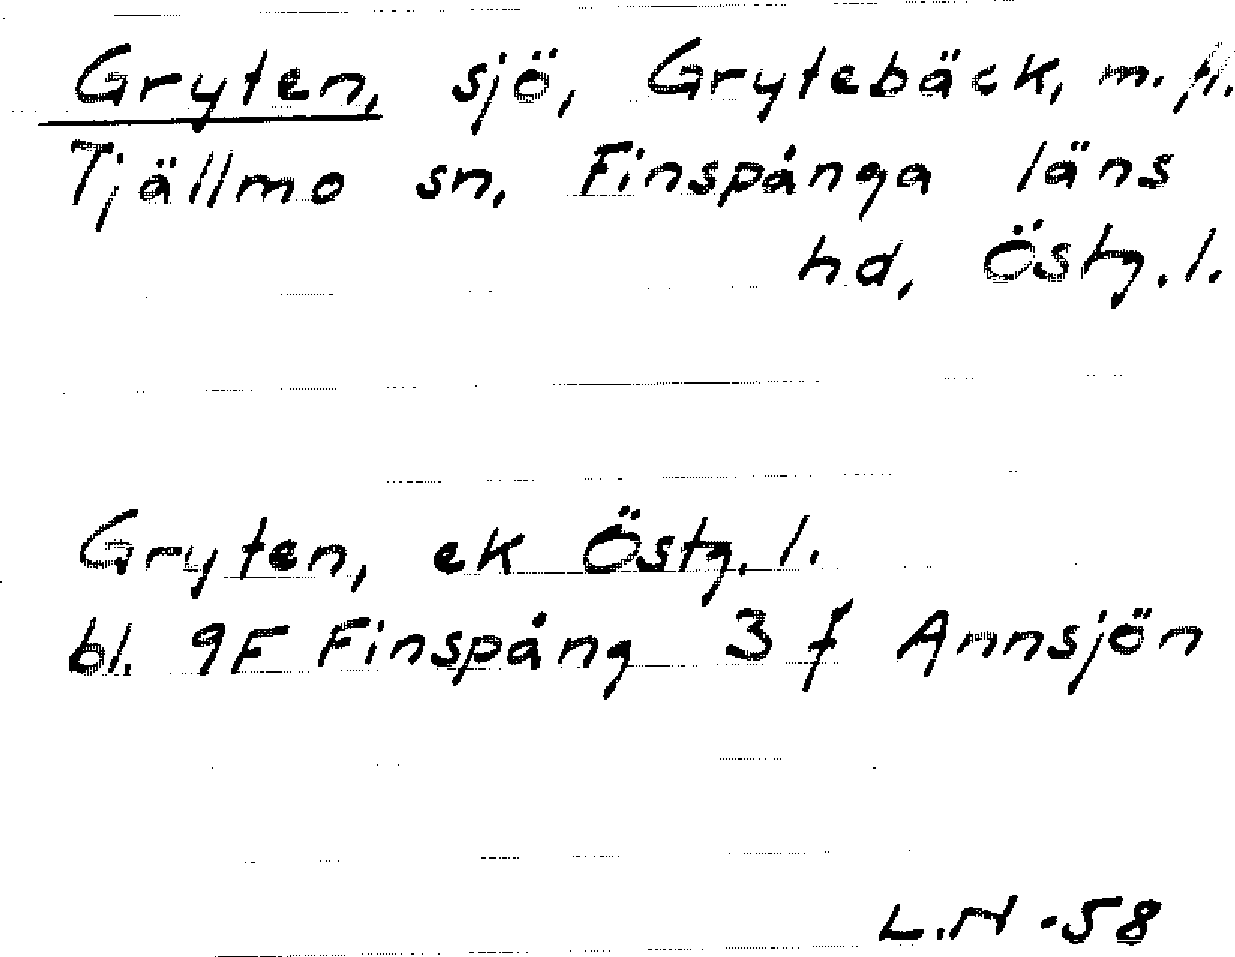 Gryten, sjö, Grytebäck, m. fl.
Tjällmo sn. Finspånga läns
hd, Östg. l.
Gryten, ek Östg. l.
bl. 9F Finspång 3 f Annsjön
L.H -58